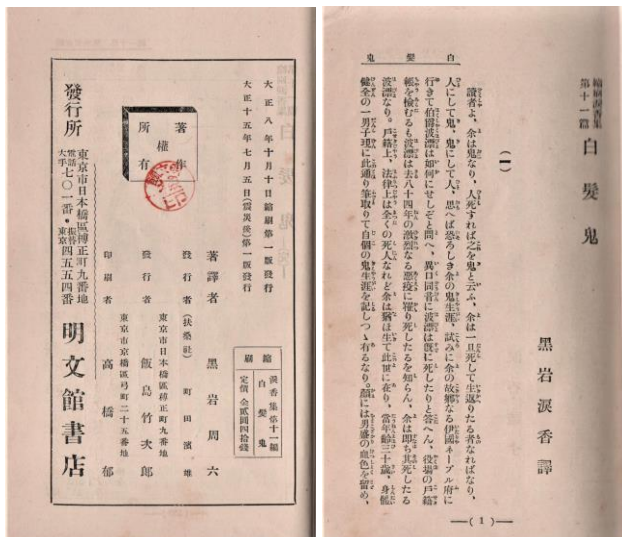 白髮鬼
縮刷涙香集
第十一篇
白髮鬼
黑岩涙香譯
(一)
讀者よ、余は鬼なり、人死すれば之を鬼と云ふ、余は一旦死して生返りたる者なればなり、
人にして鬼、鬼にして人、思へば恐ろしき余の鬼生涯、試みに余の故鄕なる伊國ネープル府に
行きて伯爵波漂は如何にせしぞと問へ、異口同音に波漂は旣に死したりと答へん、役場の戸籍
帳を檢むるも波漂は去八十四年の激烈なる惡疫に罹り死したるを知らん、余は即ち其死したる
波漂なり。戸籍上、法律上は全くの死人なれど余は猶ほ生て此世に在り、當年齡三十歲、身體
健全の一男子現に此通り筆取りて自個の鬼生涯を記しつゝ有るなり。顏には男盛の血色を留め、
―( 1 )―
大正八年十月十日縮刷第一版發行
大正十五年七月五日(震災後)第一版發行
著作權所有
縮刷
涙香集第十一編
白髮鬼
定價金貳圓四拾錢
著譯者 黑岩周六
發行者(扶桑社) 町田濱雄
東京市日本橋區榑正町九番地
發行者 飯島竹次郎
東京市京橋區弓町二十五番地
印刷者 高橋郁
發行所
東京市日本橋區榑正町九番地
電話大手七〇一番・振替東京四五五四番
明文館書店